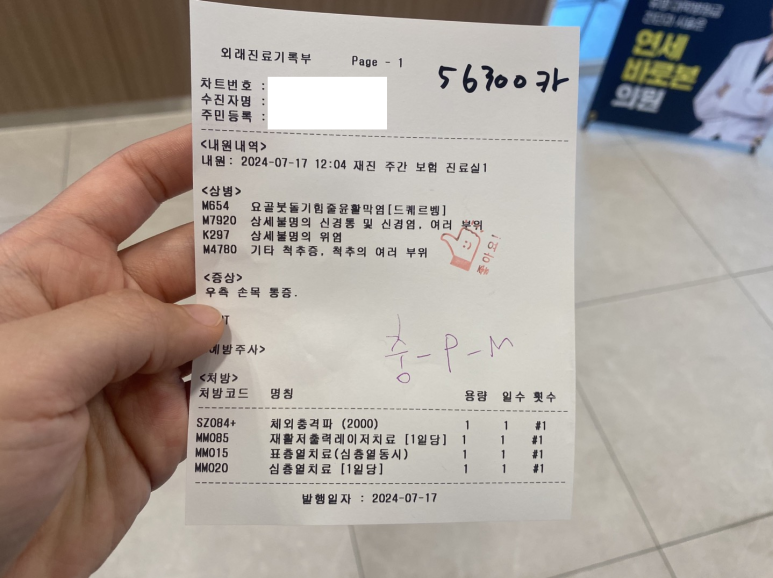 외래진료기록부 Page - 1
56300카
차트번호 :
수진자명 :
주민등록 :
<내원내역>
내원: 2024-07-17 12:04 재진 주간 보험 진료실1
<상병>
M654 요골붓돌기힘줄윤활막염[드퀘르벵]
M7920 상세불명의 신경통 및 신경염, 여러 부위
K297 상세불명의 위염
M4780 기타 척추증, 척추의 여러 부위
좋아요!
<증상>
우측 손목 통증.
예방주사>
충-P-M
<처방>
처방코드 명칭 용량 일수 횟수
SZ084+ 체외충격파 (2000) 1 1 #1
MM085 재활저출력레이저치료 [1일당] 1 1 #1
MM015 표층열치료(심층열동시) 1 1 #1
MM020 심층열치료 [1일당] 1 1 #1
발행일자 : 2024-07-17
연세
바로본
의원